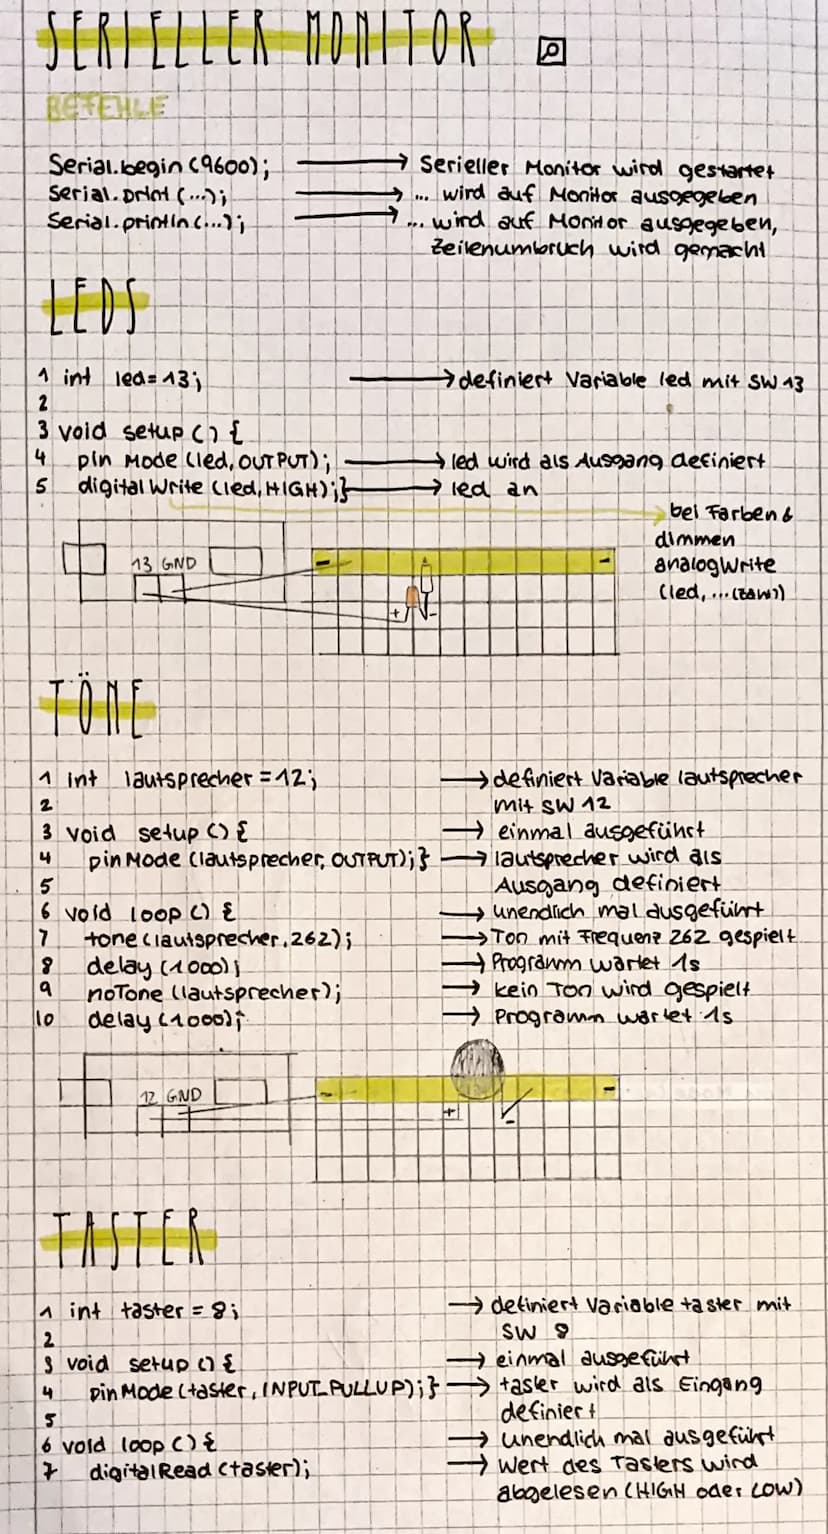 SERIELLER MONITOR
BEFEHLE
Serial.begin (9600); → Serieller Monitor wird gestartet
Serial.print (...); → ... wird auf Monitor ausgegeben
Serial.println (...); → ... wird auf Monitor ausgegeben,
Zeilenumbruch wird gemacht
LEDS
1 int led = 13; → definiert Variable led mit SW 13
2
3 void setup () {
4 pin Mode (led, OUTPUT); → led wird als Ausgang definiert
5 digital Write (led, HIGH);} → led an
→ bei Farben &
dimmen
analogWrite
(led, ... (zahl))
13 GND
- -
+ -
TÖNE
1 int lautsprecher = 12; → definiert Variable lautsprecher
2 mit SW 12
3 void setup () { → einmal ausgeführt
4 pinMode (lautsprecher, OUTPUT);} → lautsprecher wird als
5 Ausgang definiert
6 void loop () { → unendlich mal ausgeführt
7 tone (lautsprecher, 262); → Ton mit Frequenz 262 gespielt
8 delay (1000); → Programm wartet 1s
9 noTone (lautsprecher); → kein Ton wird gespielt
10 delay (1000); → Programm wartet 1s
12 GND
- -
+ -
TASTER
1 int taster = 8; → definiert Variable taster mit
2 SW 8
3 void setup () { → einmal ausgeführt
4 pinMode (taster, INPUT_PULLUP);} → taster wird als Eingang
5 definiert
6 void loop () { → unendlich mal ausgeführt
7 digitalRead (taster); → Wert des Tasters wird
abgelesen (HIGH oder LOW)